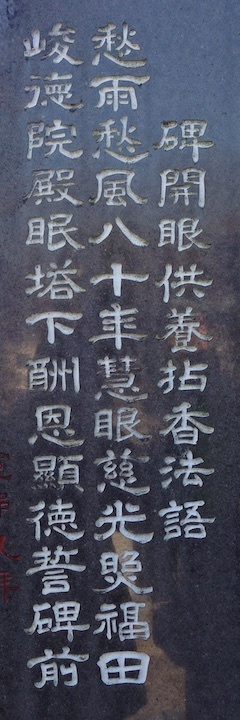 碑開眼供養拈香法語
愁雨愁風八十年慧眼慈光照福田
峻徳院殿眠塔下酬恩顯徳誓碑前